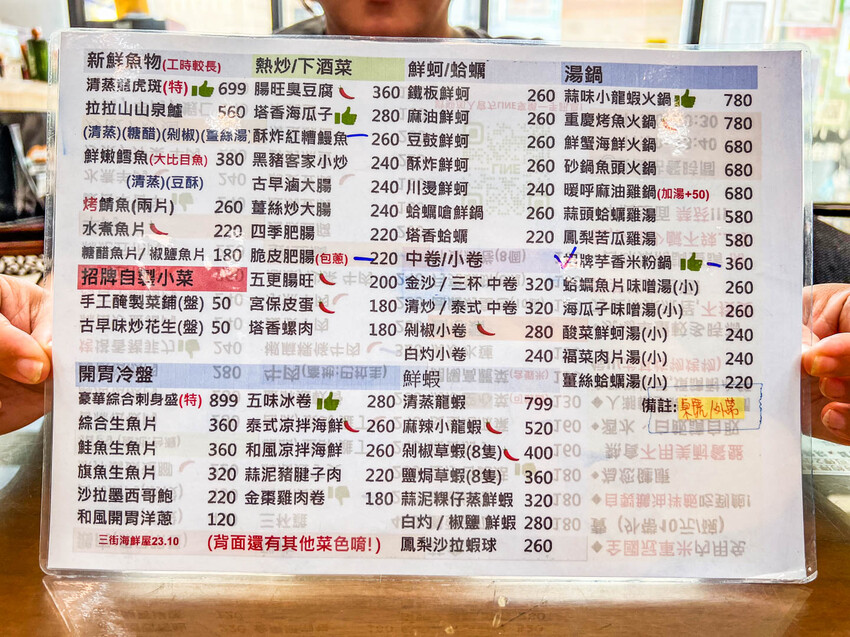 新鮮魚物(工時較長)
清蒸龍虎斑(特) 699
拉拉山山泉鱸 560
(清蒸)(糖醋)(剁椒)(薑絲湯)
鮮嫩鱈魚(大比目魚) 380
(清蒸)(豆酥)
烤鯖魚(兩片) 260
水煮魚片 220
糖醋魚片/椒鹽魚片 180
招牌自製小菜
手工醃製菜餔(盤) 50
古早味炒花生(盤) 50
開胃冷盤
豪華綜合刺身盛(特) 899
綜合生魚片 360
鮭魚生魚片 360
旗魚生魚片 320
沙拉墨西哥鮑 220
和風開胃洋蔥 120
三街海鮮屋23.10
熱炒/下酒菜
腸旺臭豆腐 360
塔香海瓜子 280
酥炸紅糟鰻魚 260
黑豬客家小炒 240
古早滷大腸 240
薑絲炒大腸 240
四季肥腸 220
脆皮肥腸(包蔥) 220
五更腸旺 200
宮保皮蛋 180
塔香螺肉 180
五味冰卷 280
泰式涼拌海鮮 260
和風涼拌海鮮 260
蒜泥豬腱子肉 220
金棗雞肉卷 180
(背面還有其他菜色唷!)
鮮蚵/蛤蠣
鐵板鮮蚵 260
麻油鮮蚵 260
豆鼓鮮蚵 260
酥炸鮮蚵 260
川燙鮮蚵 240
蛤蠣嗆鮮鍋 240
塔香蛤蠣 220
中卷/小卷
金沙/三杯 中卷 320
清炒/泰式 中卷 320
剁椒小卷 280
白灼小卷 240
鮮蝦
清蒸龍蝦 799
麻辣小龍蝦 520
剁椒草蝦(8隻) 400
鹽焗草蝦(8隻) 360
蒜泥粿仔蒸鮮蝦 320
白灼/椒鹽 鮮蝦 280
鳳梨沙拉蝦球 260
湯鍋
蒜味小龍蝦火鍋 780
重慶烤魚火鍋 780
鮮蟹海鮮火鍋 680
砂鍋魚頭火鍋 680
暖呼麻油雞鍋(加湯+50) 680
蒜頭蛤蠣雞湯 580
鳳梨苦瓜雞湯 580
招牌芋香米粉鍋 360
蛤蠣魚片味噌湯(小) 260
海瓜子味噌湯(小) 260
酸菜鮮蚵湯(小) 240
福菜肉片湯(小) 240
薑絲蛤蠣湯(小) 220
備註: